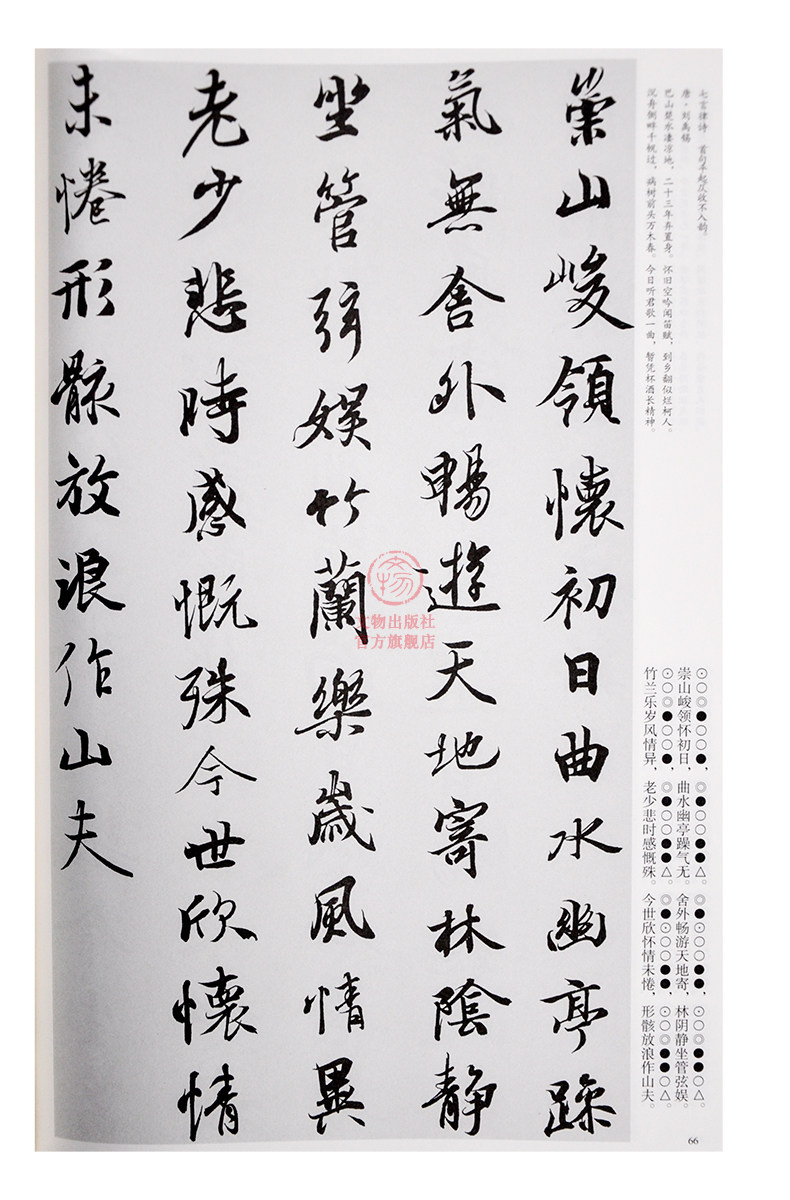 七言律诗　首句平起仄收不入韵。
唐·刘禹锡
巴山楚水凄凉地，二十三年弃置身。怀旧空吟闻笛赋，到乡翻似烂柯人。
沉舟侧畔千帆过，病树前头万木春。今日听君歌一曲，暂凭杯酒长精神。
⊙○◎●○○●，◎●○○●●△。◎●⊙○○●●，⊙○◎●●○△。
崇山峻领怀初日，曲水幽亭躁气无。舍外畅游天地寄，林阴静坐管弦娱。
⊙○◎●○○●，◎●○○●●△。◎●⊙○○●●，⊙○◎●●○△。
竹兰乐岁风情异，老少悲时感慨殊。今世欣怀情未倦，形骸放浪作山夫。
崇山峻領懷初日曲水幽亭躁
氣無舍外暢遊天地寄林陰靜
坐管弦娛竹蘭樂歲風情異
老少悲時感慨殊今世欣懷情
未惓形骸放浪作山夫
文物出版社
官方旗舰店
66